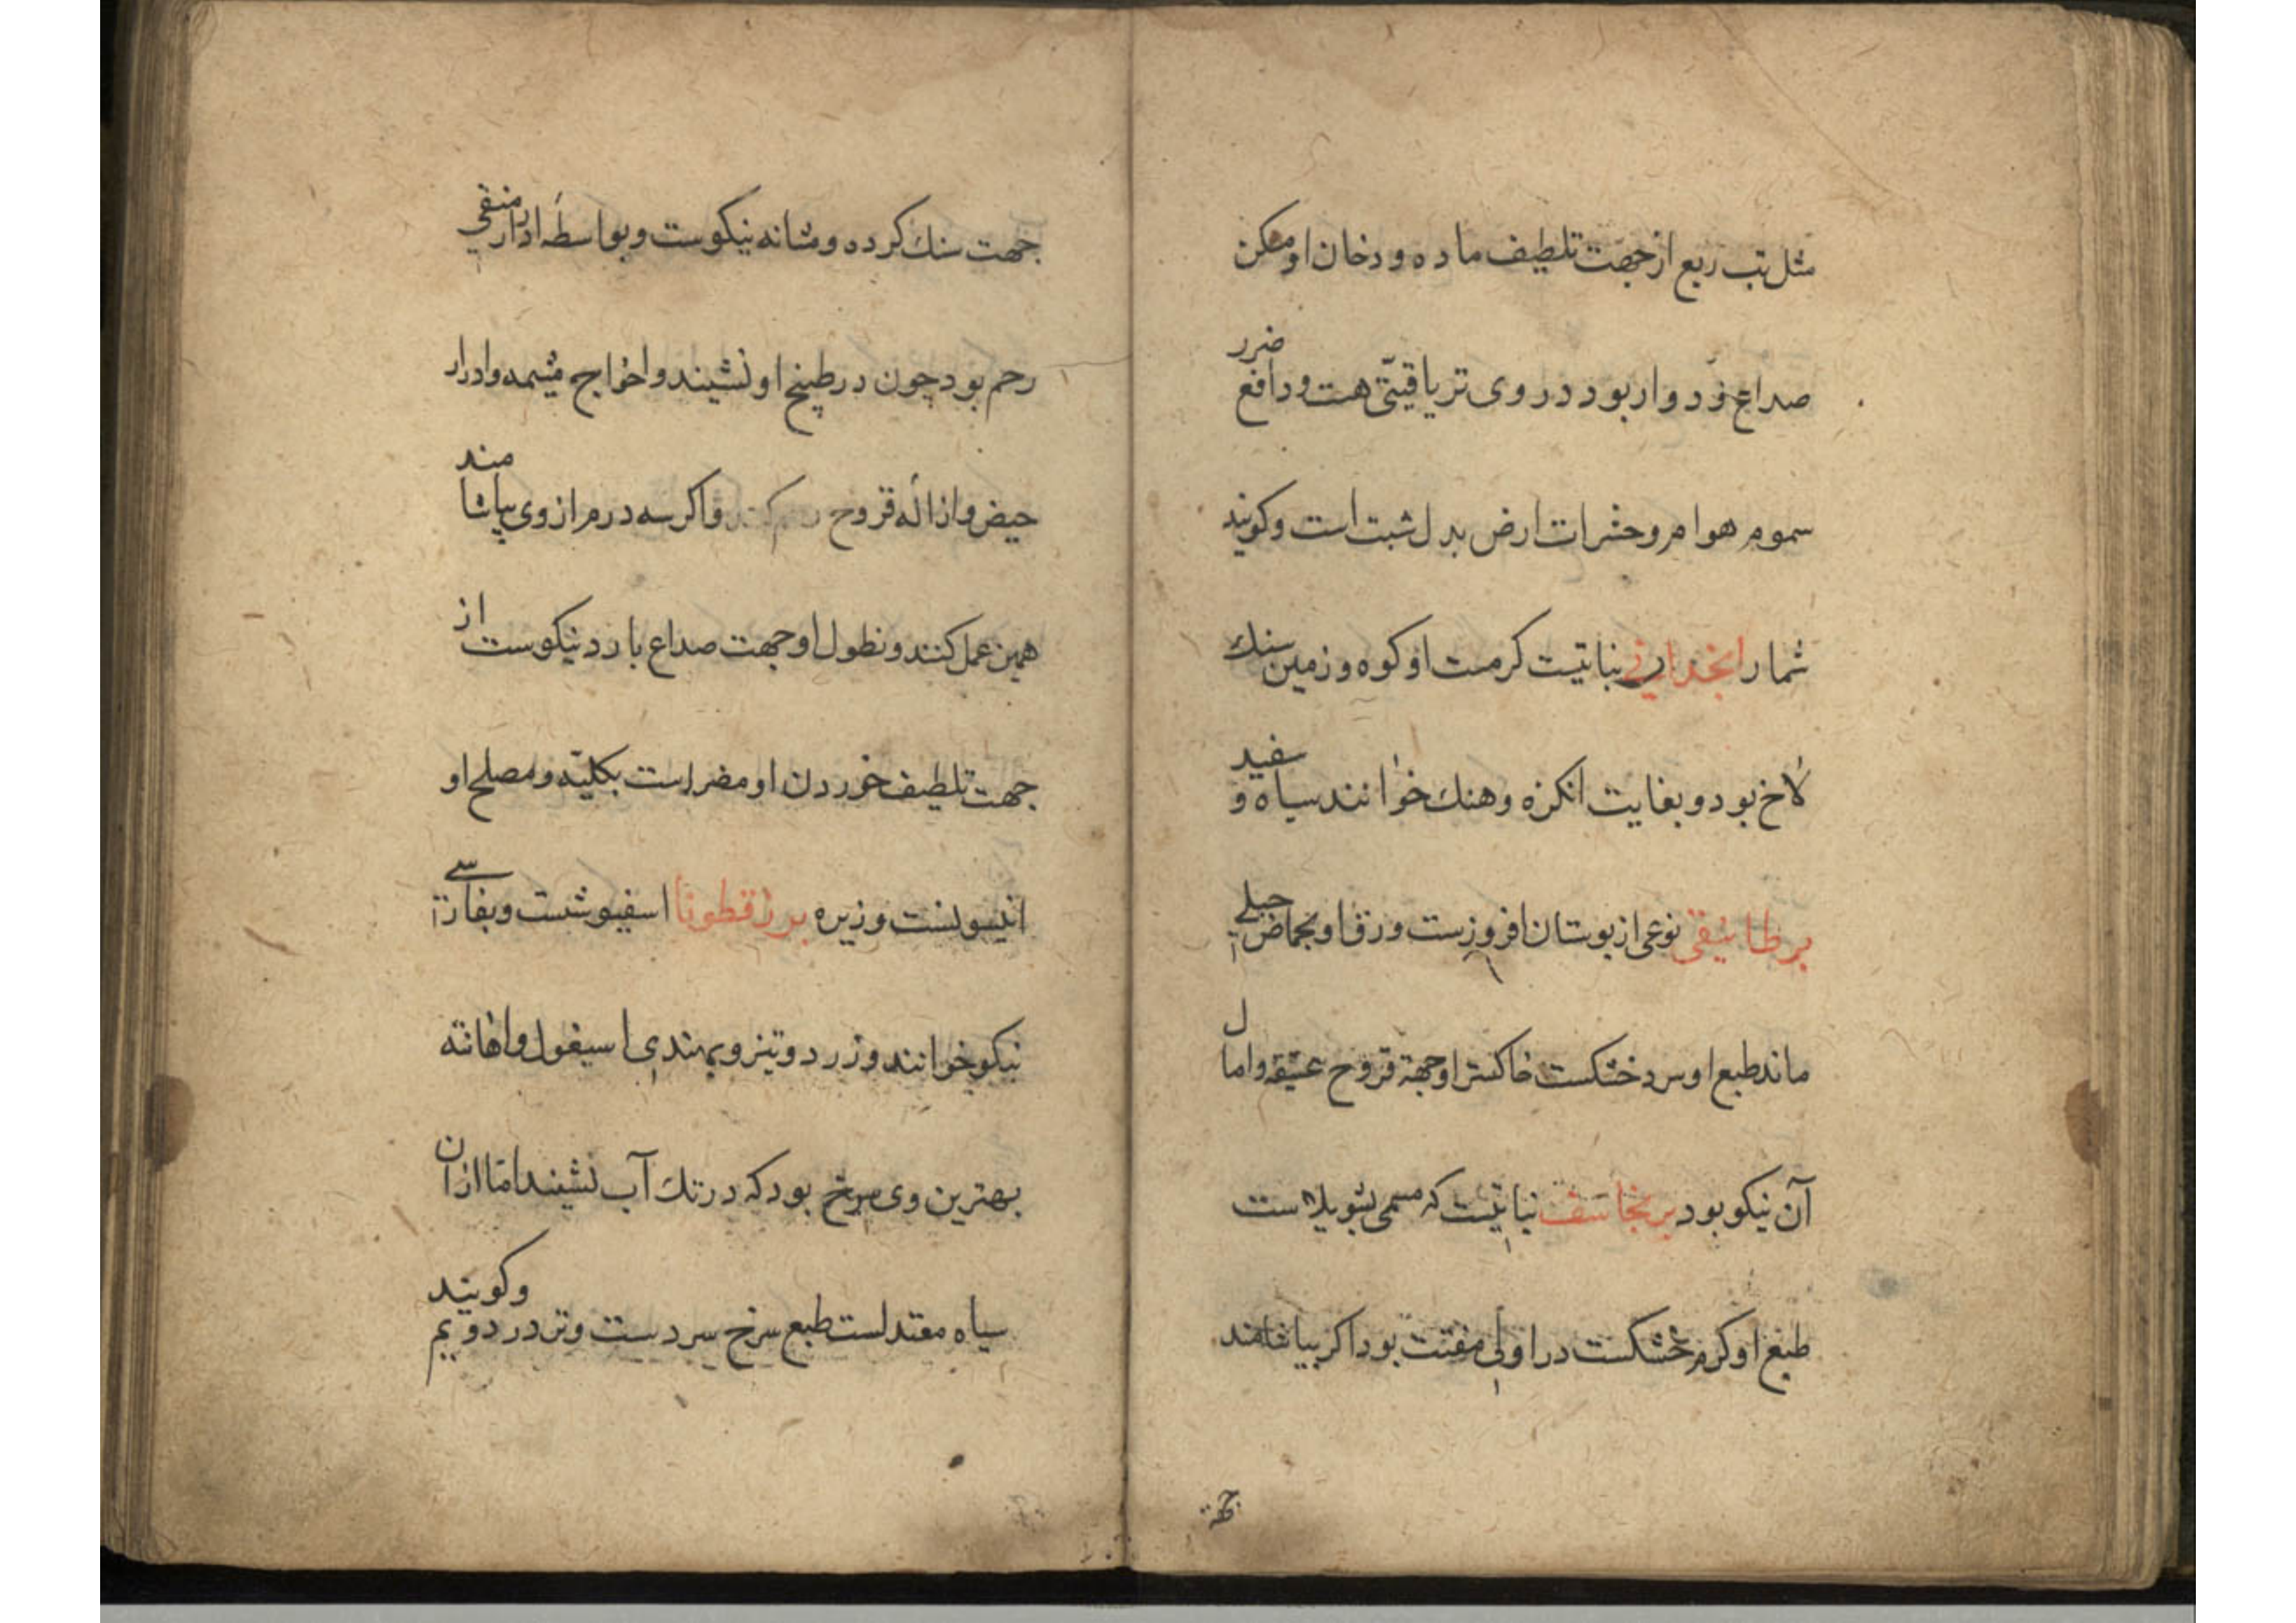 مثل تب ربع از جهت تلطیف ماده و دخان او مسکن
صداع زد وار بود در وی تریاقیتی هست و دافع ضرر
سموم هوام و حشرات ارض بدل شبت است و کویند
شما را انجدان نباتیست کرمست او کوه و زمین سنك
لاخ بود و بغایت انکزه وهنك خوانند سیاه و سفید
برطانیقی نوعی از بوستان افروزست ورق او بحماض جبلے
ماند طبع او سرد خشکست خاکستر او جهة قروح عتیقه و اما ل
آن نیکو بود برنجاسف نباتیست که مسمی بشویلا است
طبع او کرم خشکست در اولی مفتت بود اکر بیاشامند
جهة
جهت سنك کرده و مثانه نیکوست و بواسطه ادرار منقی
رحم بود چون در طبیخ او نشینند و اخراج مشیمه و ادرار
حیض و ازاله قروح رحم کند و اکر سه درم از وی بیاشامند
همین عمل کنند و نطول او جهت صداع بارد نیکوست از
جهت تلطیف خوردن او مضر است بکلیه و مصلح او
انیسونست و زیره بزرقطونا اسفیوشست و بفارسے
نیکو خوانند و زرد و تیز و بهندی اسیغول و اهانته
بهترین وی سرخ بود که در تك آب نشیند اما ازان
سیاه معتدلست طبع سرخ سردست و تر در دویم وکویند